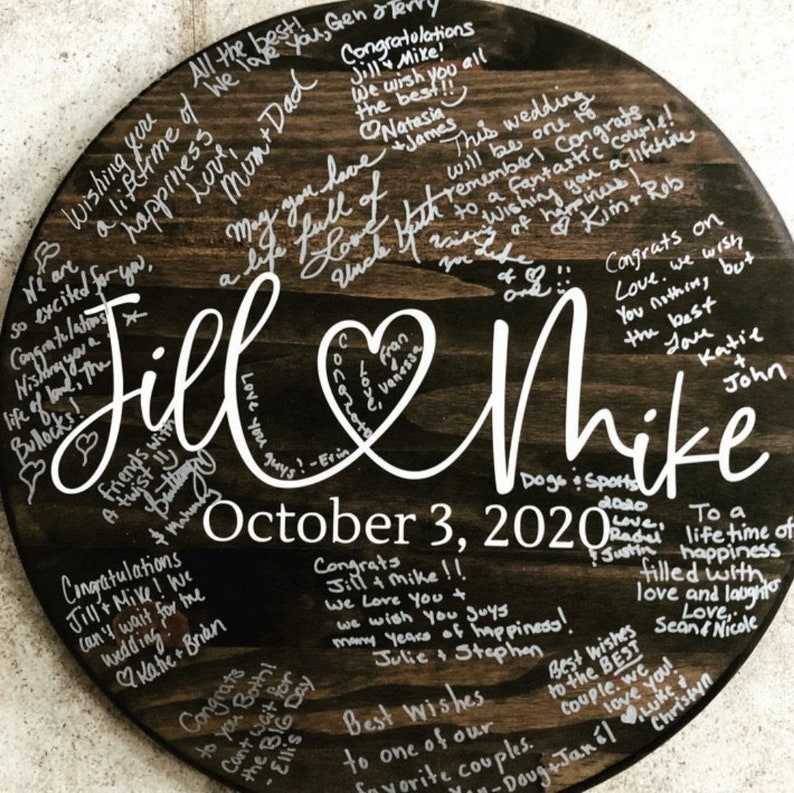 All the best!
We love you, Gen & Terry
Congratulations
Jill & Mike!
We wish you all
the best!!
Natasia
+ James
Wishing you
a lifetime of
happiness
Love,
Mom + Dad
This wedding
will be one to
remember! Congrats
to a fantastic couple!!
Wishing you a lifetime
of happiness!
Kim + Rob
May you have
a life full of
Love
Uncle Keith
We are
so excited for you,
Congratulations!
Wishing you a
life of love, the
Bullocks!
Congrats on
Love. we wish
You nothing, but
the best
Love
Katie
+
John
Jill Mike
October 3, 2020
Love you guys! - Erin
Congrats
Love,
Fran
Vanessa
Friends with
A twist!!
Dogs & Sports
2020
Love,
Rachel
& Justin
To a
lifetime of
happiness
filled with
love and laughter
Love,
Sean & Nicole
Congratulations
Jill & Mike! We
can't wait for the
wedding!
Katie + Brian
Congrats
Jill & Mike!!
we Love You +
we wish You guys
many years of happiness!
Julie + Stephen
Congrats
to you Both!
Cant wait for
the BIG Day
- Ellis
Best Wishes
to one of our
favorite couples.
- Doug + Jan
Best Wishes
to the BEST
couple. we
love you!
Luke &
Christyn